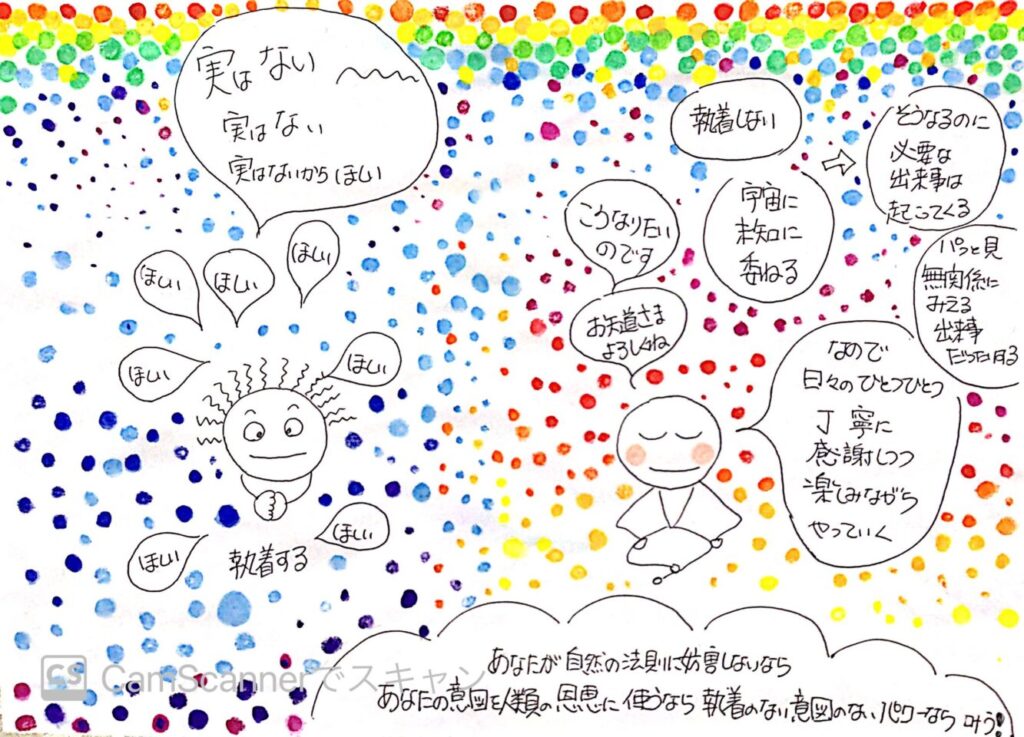 実はない
実はない
実はないからほしい
ほしい
ほしい
ほしい
ほしい
ほしい
ほしい
ほしい
執着する
執着しない
そうなるのに
必要な
出来事は
起こってくる
宇宙に
未知に
委ねる
こうなりたい
のです
お知道さま
よろしくね
パッと見
無関係に
みえる
出来事
だったりする
なので
日々のひとつひとつ
丁寧に
感謝しつつ
楽しみながら
やっていく
あなたが自然の法則に妨害しないなら
あなたの意図を人類の恩恵に使うなら 執着のない意図のない パワーなら 叶う!
CS CamScannerでスキャン